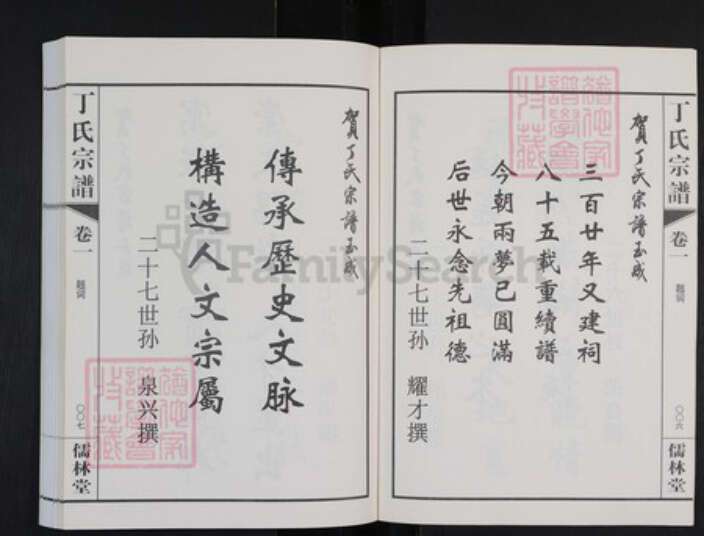 丁氏宗譜
卷一
題词
〇〇六
儒林堂
賀丁氏宗譜玉成
三百廿年又建祠
八十五载重續譜
今朝兩夢已圓滿
后世永念先祖德
二十七世孙 耀才撰
賀丁氏宗譜玉成
傳承歷史文脉
構造人文宗屬
二十七世孙 泉兴撰
丁氏宗譜
卷一
題词
〇〇七
儒林堂
FamilySearch